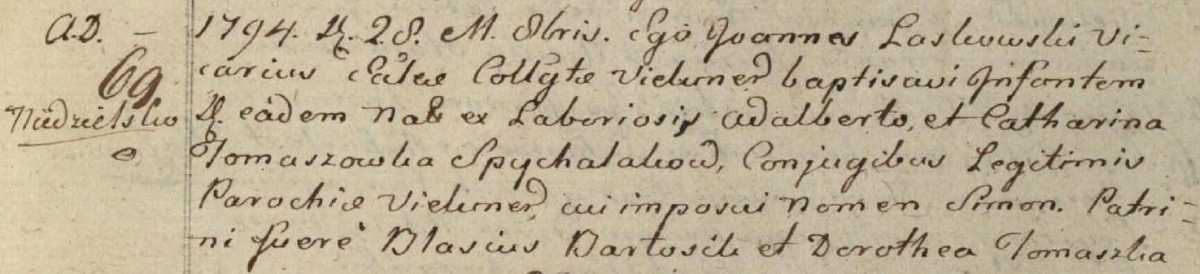 A.D. — 1794. D. 28. M. 8bris. Ego Joannes Laskowski Vi=
69 carius Ecclae Collgtae Vielunen baptisavi Infantem
Niedzielsko D. eadem Nat ex Laboriosis Adalberto, et Catharina
o Tomaszowka Spychalakow, Conjugibus Legitimis
Parochiae Vielunen, cui imposui nomen Simon. Patri=
ni fuere Blasius Bartosik et Dorothea Tomaszka